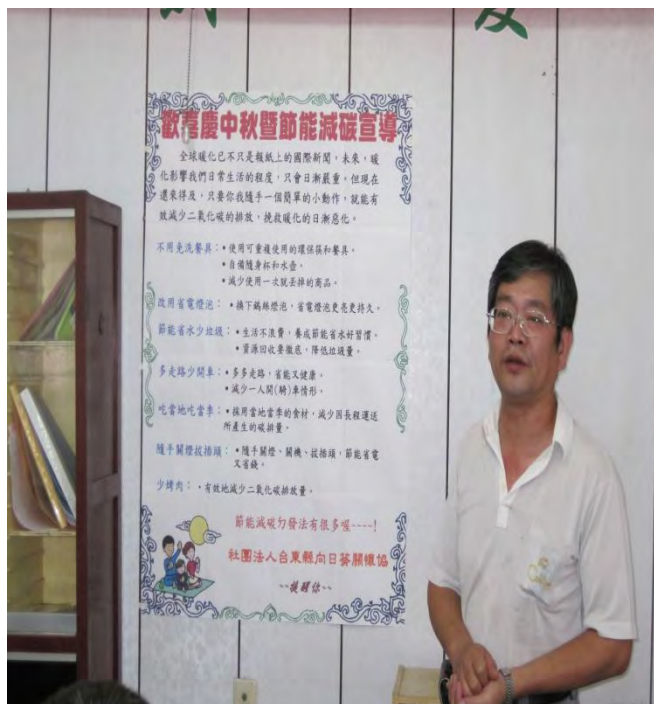 歡喜慶中秋暨節能減碳宣導
全球暖化已不只是報紙上的國際新聞，未來，暖
化影響我們日常生活的程度，只會日漸嚴重。但現在
還來得及，只要你我隨手一個簡單的小動作，就能有
效減少二氧化碳的排放，挽救暖化的日漸惡化。
不用免洗餐具：•使用可重複使用的環保筷和餐具。
•自備隨身杯和水壺。
•減少使用一次就丟掉的商品。
改用省電燈泡：•換下鎢絲燈泡，省電燈泡更亮更持久。
節能省水少垃圾：•生活不浪費，養成節能省水好習慣。
•資源回收要徹底，降低垃圾量。
多走路少開車：•多多走路，省能又健康。
•減少一人開(騎)車情形。
吃當地吃當季：•採用當地當季的食材，減少因長程運送
所產生的碳排量。
隨手關燈拔插頭：•隨手關燈、關機、拔插頭，節能省電
又省錢。
少烤肉：•有效地減少二氧化碳排放量。
節能減碳ㄉ發法有很多喔----!
社團法人台東縣向日葵關懷協
~~提醒你~~